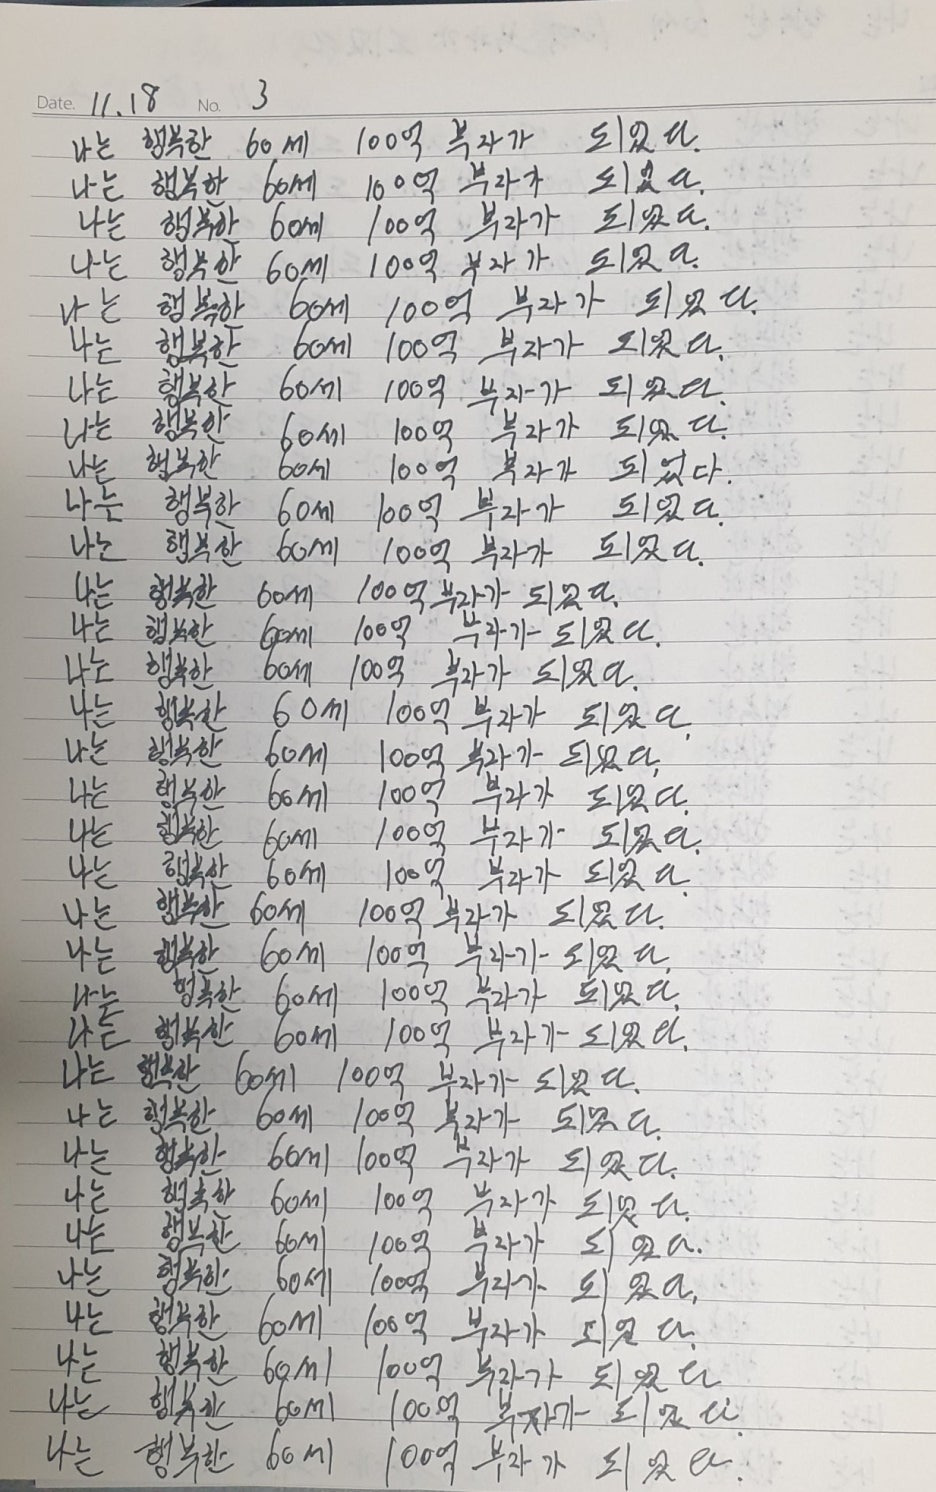 Date. 11.18 No. 3
나는 행복한 60세 100억 부자가 되었다.
나는 행복한 60세 100억 부자가 되었다.
나는 행복한 60세 100억 부자가 되었다.
나는 행복한 60세 100억 부자가 되었다.
나는 행복한 60세 100억 부자가 되었다.
나는 행복한 60세 100억 부자가 되었다.
나는 행복한 60세 100억 부자가 되었다.
나는 행복한 60세 100억 부자가 되었다.
나는 행복한 60세 100억 부자가 되었다.
나는 행복한 60세 100억 부자가 되었다.
나는 행복한 60세 100억 부자가 되었다.
나는 행복한 60세 100억 부자가 되었다.
나는 행복한 60세 100억 부자가 되었다.
나는 행복한 60세 100억 부자가 되었다.
나는 행복한 60세 100억 부자가 되었다.
나는 행복한 60세 100억 부자가 되었다.
나는 행복한 60세 100억 부자가 되었다.
나는 행복한 60세 100억 부자가 되었다.
나는 행복한 60세 100억 부자가 되었다.
나는 행복한 60세 100억 부자가 되었다.
나는 행복한 60세 100억 부자가 되었다.
나는 행복한 60세 100억 부자가 되었다.
나는 행복한 60세 100억 부자가 되었다.
나는 행복한 60세 100억 부자가 되었다.
나는 행복한 60세 100억 부자가 되었다.
나는 행복한 60세 100억 부자가 되었다.
나는 행복한 60세 100억 부자가 되었다.
나는 행복한 60세 100억 부자가 되었다.
나는 행복한 60세 100억 부자가 되었다.
나는 행복한 60세 100억 부자가 되었다.
나는 행복한 60세 100억 부자가 되었다
나는 행복한 60세 100억 부자가 되었다.
나는 행복한 60세 100억 부자가 되었다.